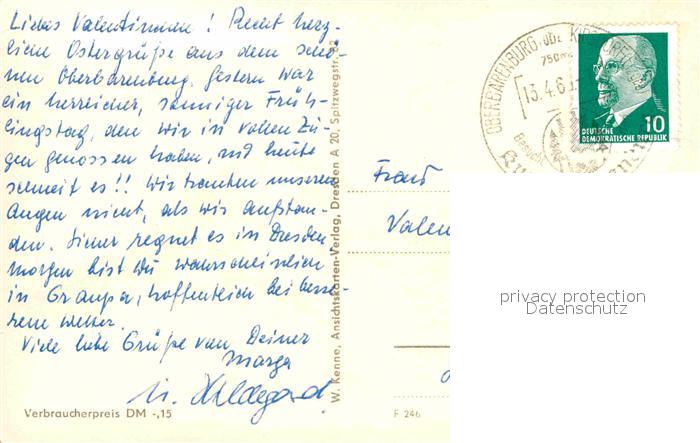 Liebes Valentinman! Recht herz-
liche Ostergrüße aus dem schö-
nen Oberbärenburg. Gestern war
ein herrlicher, sonniger Früh-
lingstag, den wir in vollen Zü-
gen genossen haben, und heute
schneit es!! Wir trauten unseren
Augen nicht, als wir aufstan-
den. Sicher regnet es in Dresden,
morgen bist Du wahrscheinlich
in Graupa, hoffentlich bei besse-
rem Wetter.
Viele liebe Grüße von Deiner
Marga
u. Hildegard
Verbraucherpreis DM -,15
W. Kenne, Ansichtskarten-Verlag, Dresden A 20, Spitzwegstr. 32
F 246
OBERBÄRENBURG üb. KIPSDORF
750 m
13.4.6
Besuch
10
DEUTSCHE
DEMOKRATISCHE REPUBLIK
Frau
Valen
privacy protection
Datenschutz